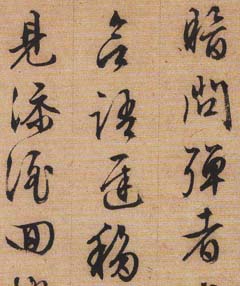 暗問彈者
語遲移
見添酒回